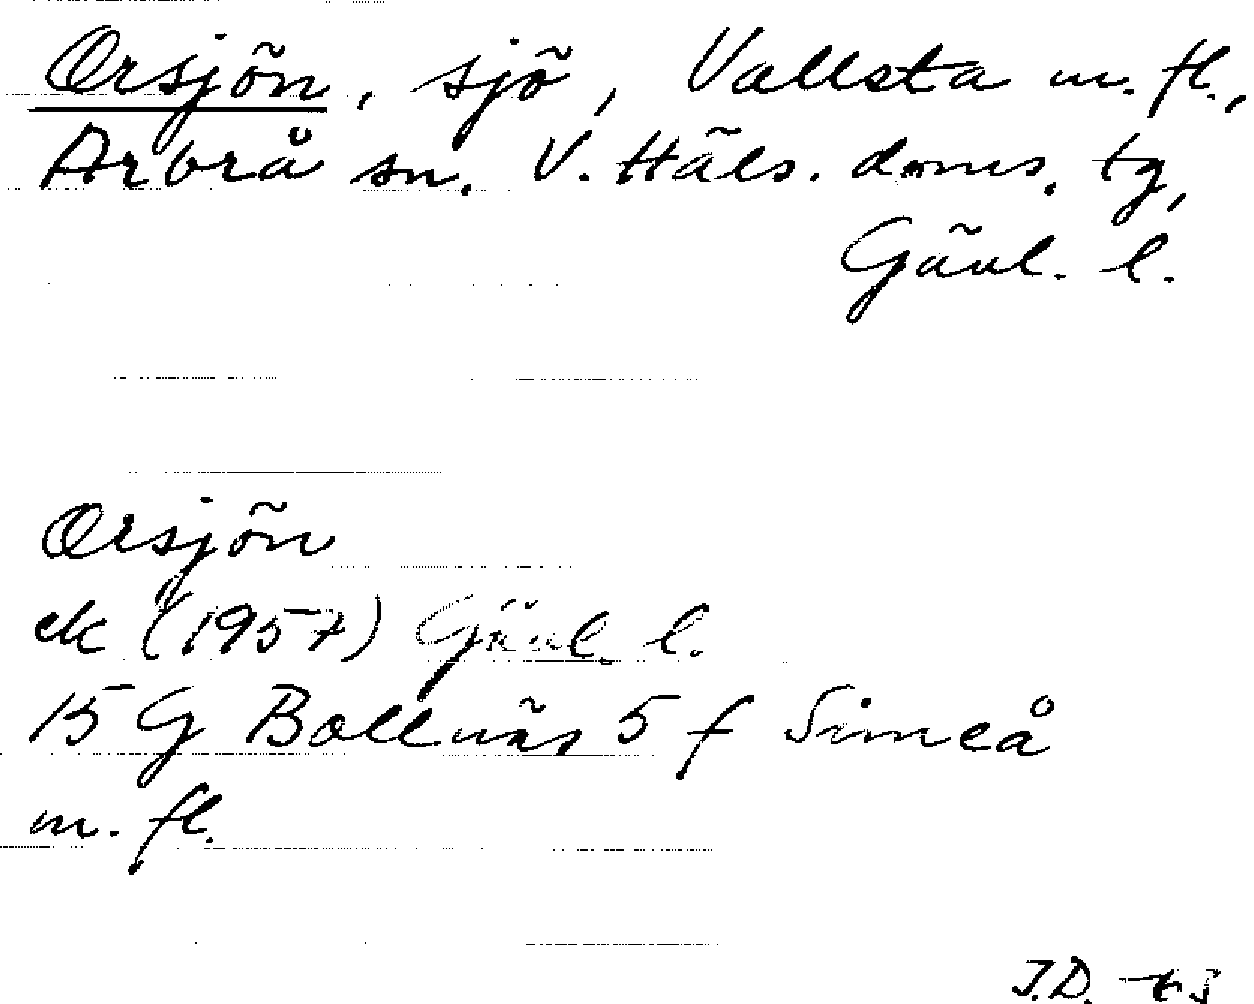 Orsjön, sjö, Vallsta m. fl.,
Arbrå sn. V. Häls. doms. tg,
Gävl. l.
Orsjön
ek (1957) Gävl. l.
15 G Bollnäs 5 f Simeå
m. fl.
J.D.